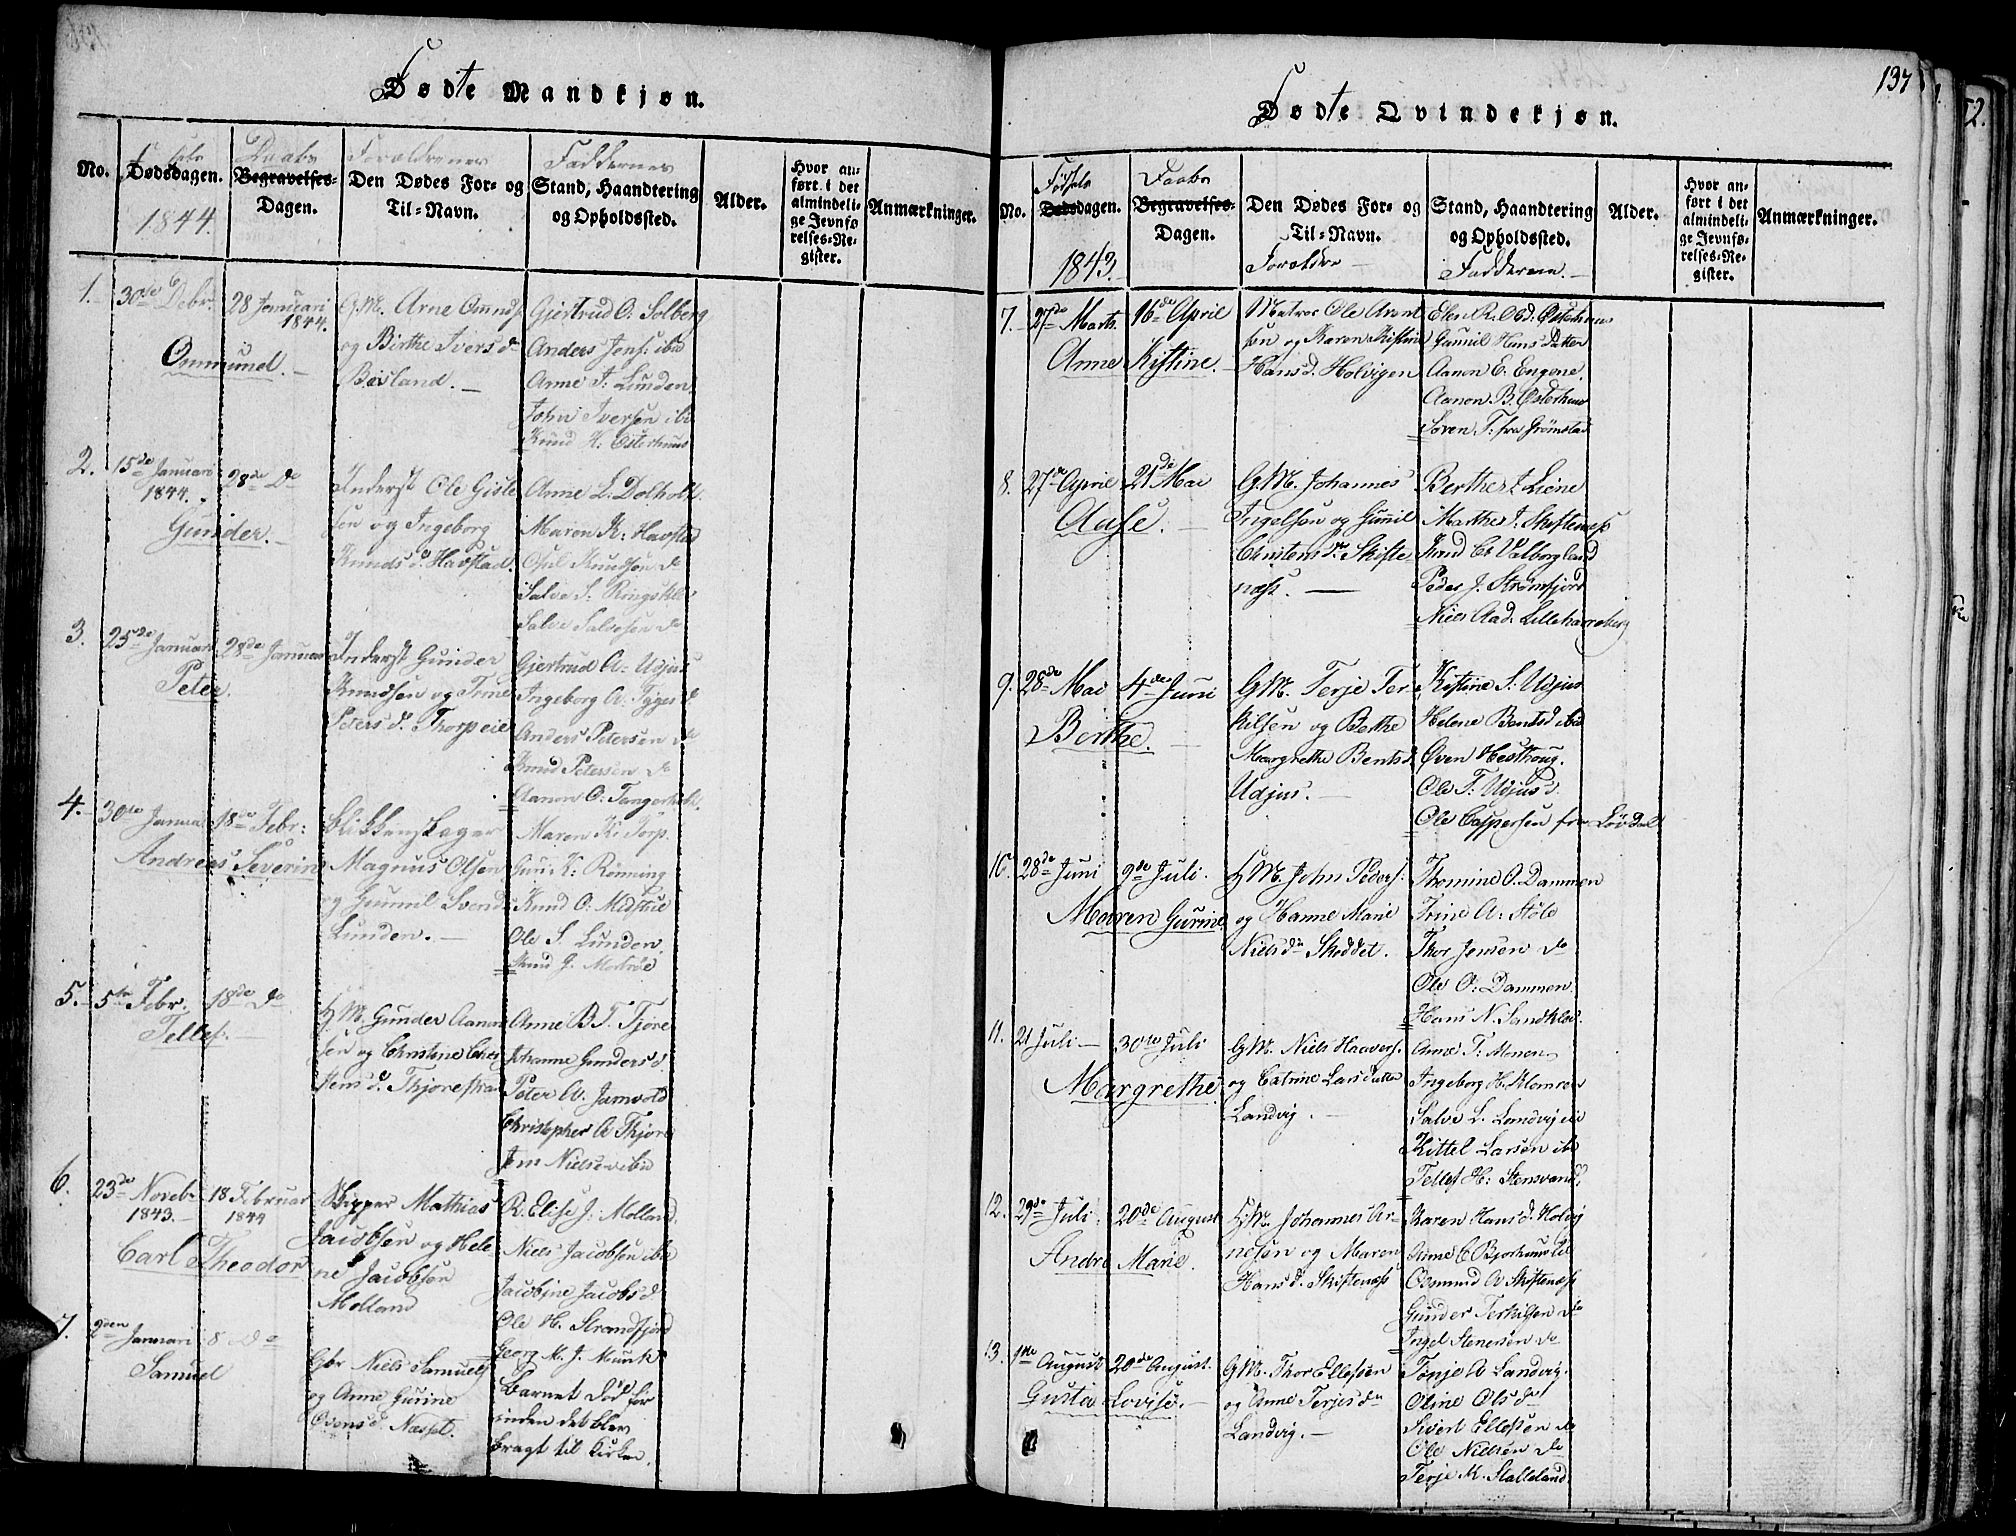 Fødte Mandkjøn.
No.
Fødsels
Dødsdagen.
1844.
Daabs
Begravelses-
Dagen.
Forældrenes
Den Dødes For- og
Til-Navn.
Faddernes
Stand, Haandtering
og Opholdssted.
Alder.
Hvor an-
ført i det
almindeli-
ge Jevnfø-
relses-Re-
gister.
Anmærkninger.
1. 30te Debr. 28 Januari
1844.
Ommund.
G.M. Arne Omunds.
og Birthe Ivers d.
Beisland.
Gjertrud O. Solberg
Anders Jens: ibid
Anne T. Lunden
John Iversen ibi
Knud H: Østerhuus
2. 15de Januari
1844.
28de Do
Gunder.
Inderst Ole Gisle
sen og Ingeborg
Knuds d. Havstad.
Anne L. Dolholt.
Maren K: Havstad
Osul Knudsen do
Salve S. Ringskle
Salve Salvesen do
3. 25de Januari 28de Januar
Peter.
Inderst Gunder
Knudsen og Trine
Peters d. Thorpeie
Gjertrud A. Udjus
Ingeborg A: Tygesd
Anders Petersen do
Knud Petersen do
Aanon O: Tangerholt.
4. 30te Janua 18de Febr:
Andreas Severin
Blikkenslager
Magnus Olsen
og Gunnil Svends
Lunden.
Maren K. Torp.
Guri K: Rønning
Knud O: Midstue
Ole S. Lunden
Knud J. Mortrøe
5. 5te Febr. 18de Do
Tellef.
G.M. Gunder Aanon
sen og Christine Chri
stens d. Thjorestran
Anne B. T. Tjore
Johanne Gunders d.
Peter A. Jamvold
Christopher A Thjore
Jens Nielsen ibid
6. 23de Novebr 18 Februar
1843. 1844
Carl Theodor
Skipper Mathias
Jacobsen og Hele
ne Jacobsen
Molland
R. Elise J. Molland.
Niels Jacobsen ibid
Jacobine Jacobs d
Ole H. Strandfjord
Georg M. J. Munk
7. 2den Januari 8 Do
Samuel
Gbr Niels Samuels
og Anne Gurine
Ovens d. Næsset.
Barnet død før
inden det blev
bragt til Kirken.
137
Fødte Qvindekjøn.
No.
Fødsels
Dødsdagen.
1843.
Daabs
Begravelses-
Dagen.
Den Dødes For- og
Til-Navn.
Forældre
Stand, Haandtering
og Opholdssted.
Fadderne.
Alder.
Hvor an-
ført i det
almindeli-
ge Jevnfø-
relses-Re-
gister.
Anmærkninger.
7. 27de Marts 16de April
Anne Kistine.
Matros Ole Arent
sen og Karen Kistine
Hans d. Holvigen
Elen R. Obd. Østerhus
Gunnil Hans Datter
Aanon E. Engene.
Aanon B. Østerhus
Søren T. fra Grømstad
8. 27de April 21de Mai
Aase.
G.M. Johannes
Ingelsen og Gunnil
Christens d. Skifte
næss.
Berthe T. Liene
Marthe J. Skiftenæss
Knud Ch Valborgland
Peder J. Strømfjord
Niels Aad. Lilleharreberg
9. 28de Mai 4de Juni
Berthe.
G.M. Terje Ter
kilsen og Berthe
Margrethe Bents d.
Udjus.
Kistine S. Udjus
Helene Bentsd ibid
Øven Hesthoug.
Ole T. Udjus.
Ole Caspersen fra Løvdal
10. 28de Juni 9de Juli.
Maren Gurine
G.M. John Peders:
og Hanne Marie
Niels d. Skoddet.
Thomine O. Dammen
Trine A: Støle
Thor Jensen do
Ole O: Dammen.
Hans N. Sandklev.
11. 21 Juli 30te Juli
Margrethe
G.M. Niels Haavors.
og Catrine Larsdatter
Landvig.
Anne T: Monen
Ingeborg H. Klomren
Salve L. Landvig eie
Kittel Larsen ibi
Tellef H: Stensvand.
12. 29de Juli 20de August
Andre Marie.
G.M. Johannes Ar-
nesen og Maren
Hans d. Skiftenæss
Karen Hans d. Holvig
Anne C Bjorhuusdal
Osmund A Skiftenæss
Gunder Terkilsen do
Ingel Stenersen do
13. 1ste August 20de August.
Gusta Lovise.
G.M. Thor Ellefsen
og Anne Terjes d.
Landvig.
Tonje A Landvig.
Oline Ols d.
Sivert Ellefsen do
Ole Nielsen do
Terje M. Stalleland.